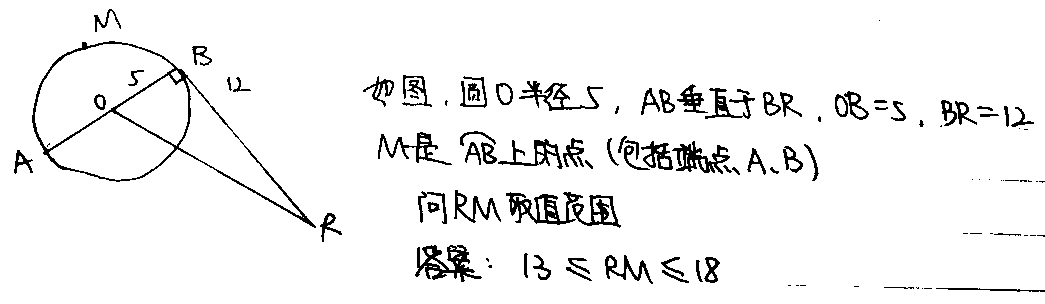 M
B
5
12
O
A
R
如图，圆O半径5，AB垂直于BR，OB=5，BR=12
M是AB上的点（包括端点A、B）
问RM取值范围
答案：13≤RM≤18